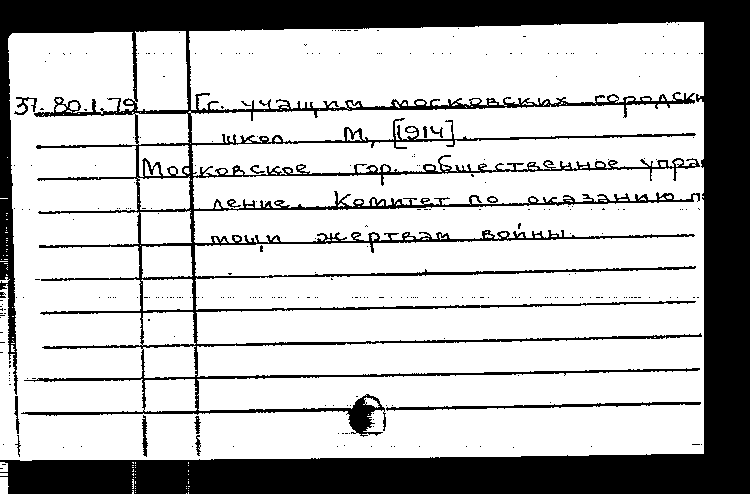 37.80.1.79. Гг. учащим московских городски
школ. М., [1914].
Московское гор. общественное упра
ление. Комитет по оказанию по
мощи жертвам войны.